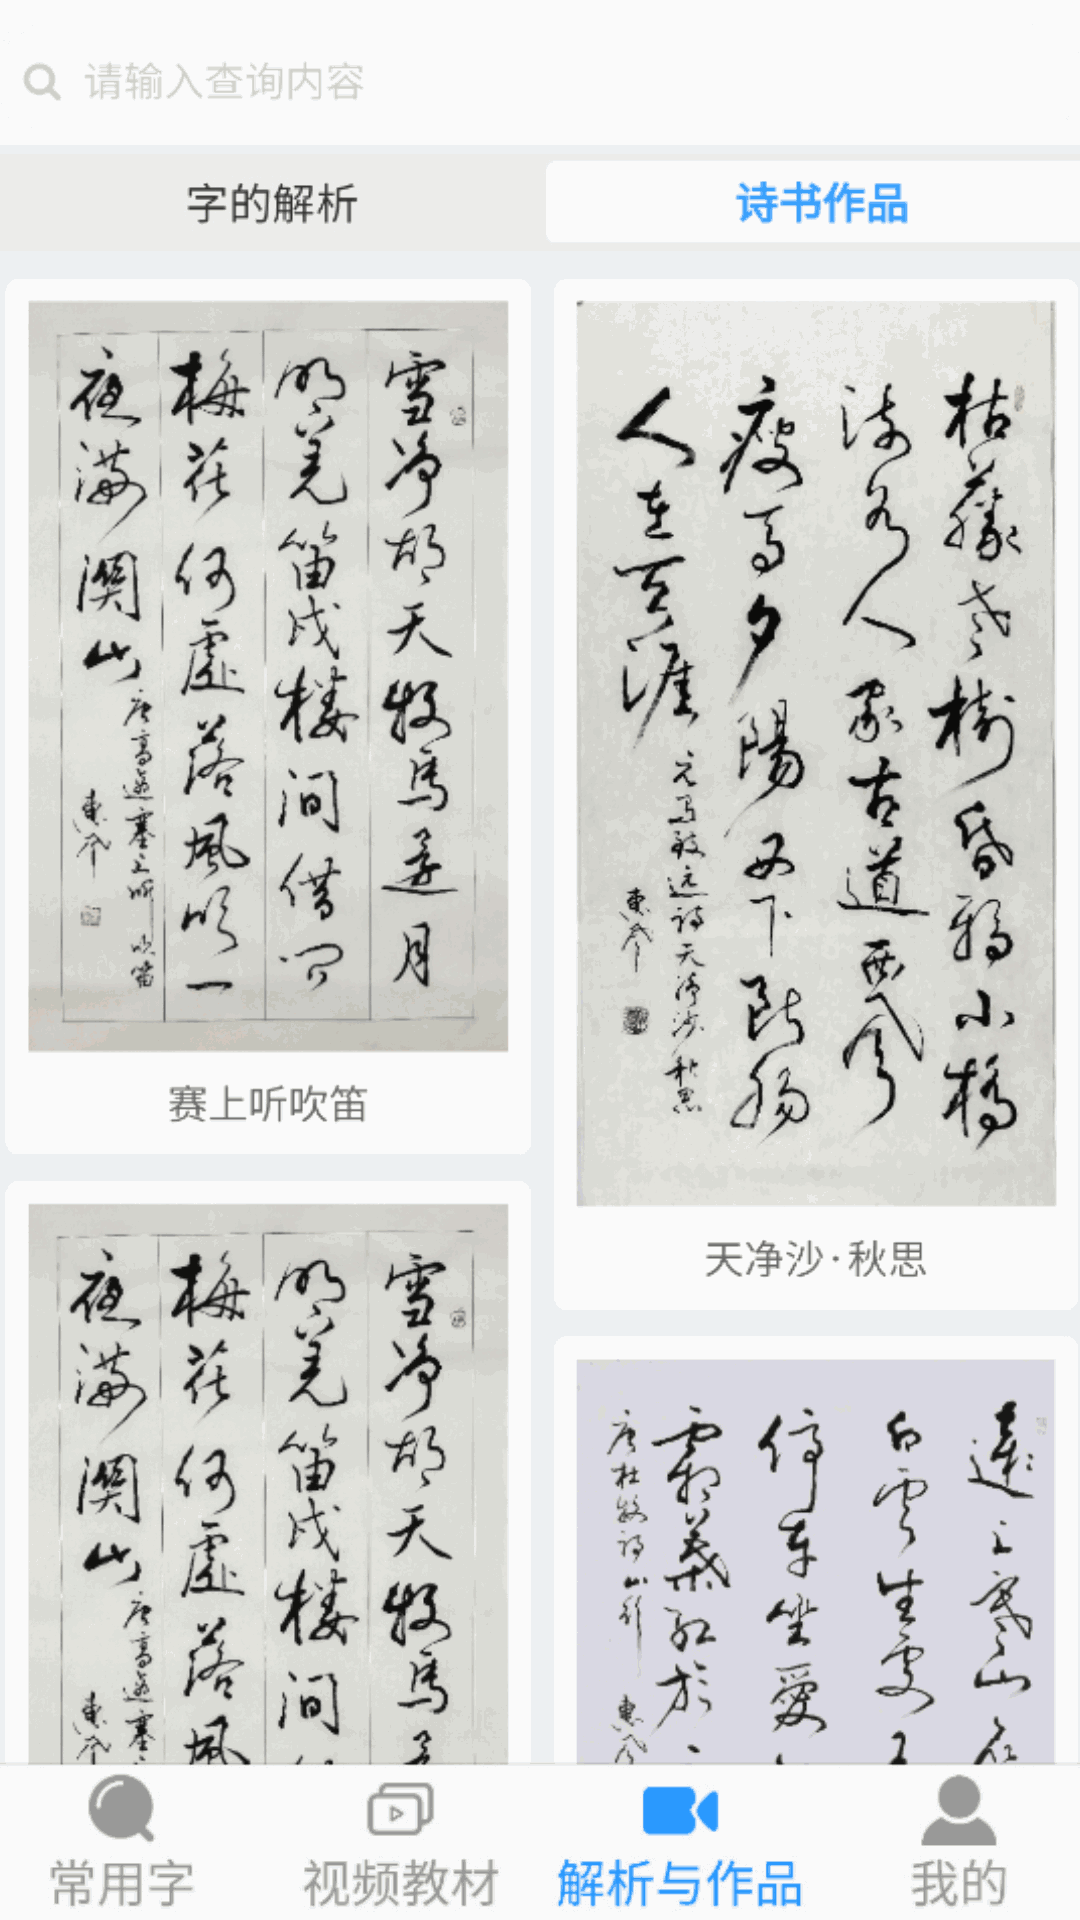 请输入查询内容
字的解析
诗书作品
雪净胡天牧馬還月
明羌笛戍楼间借问
梅花何處落風吹一
夜满關山
唐高適塞上听吹笛
赛上听吹笛
枯藤老樹昏鸦小橋
流水人家古道西风
瘦马夕陽西下断肠
人在天涯
元马致远诗天净沙秋思
天净沙·秋思
雪净胡天牧馬
明羌笛戍楼间
梅花何處落風
夜满關山
唐高適塞
遠上寒山
白雲生處
停车坐愛
霜葉红於
唐杜牧诗山行
常用字
视频教材
解析与作品
我的